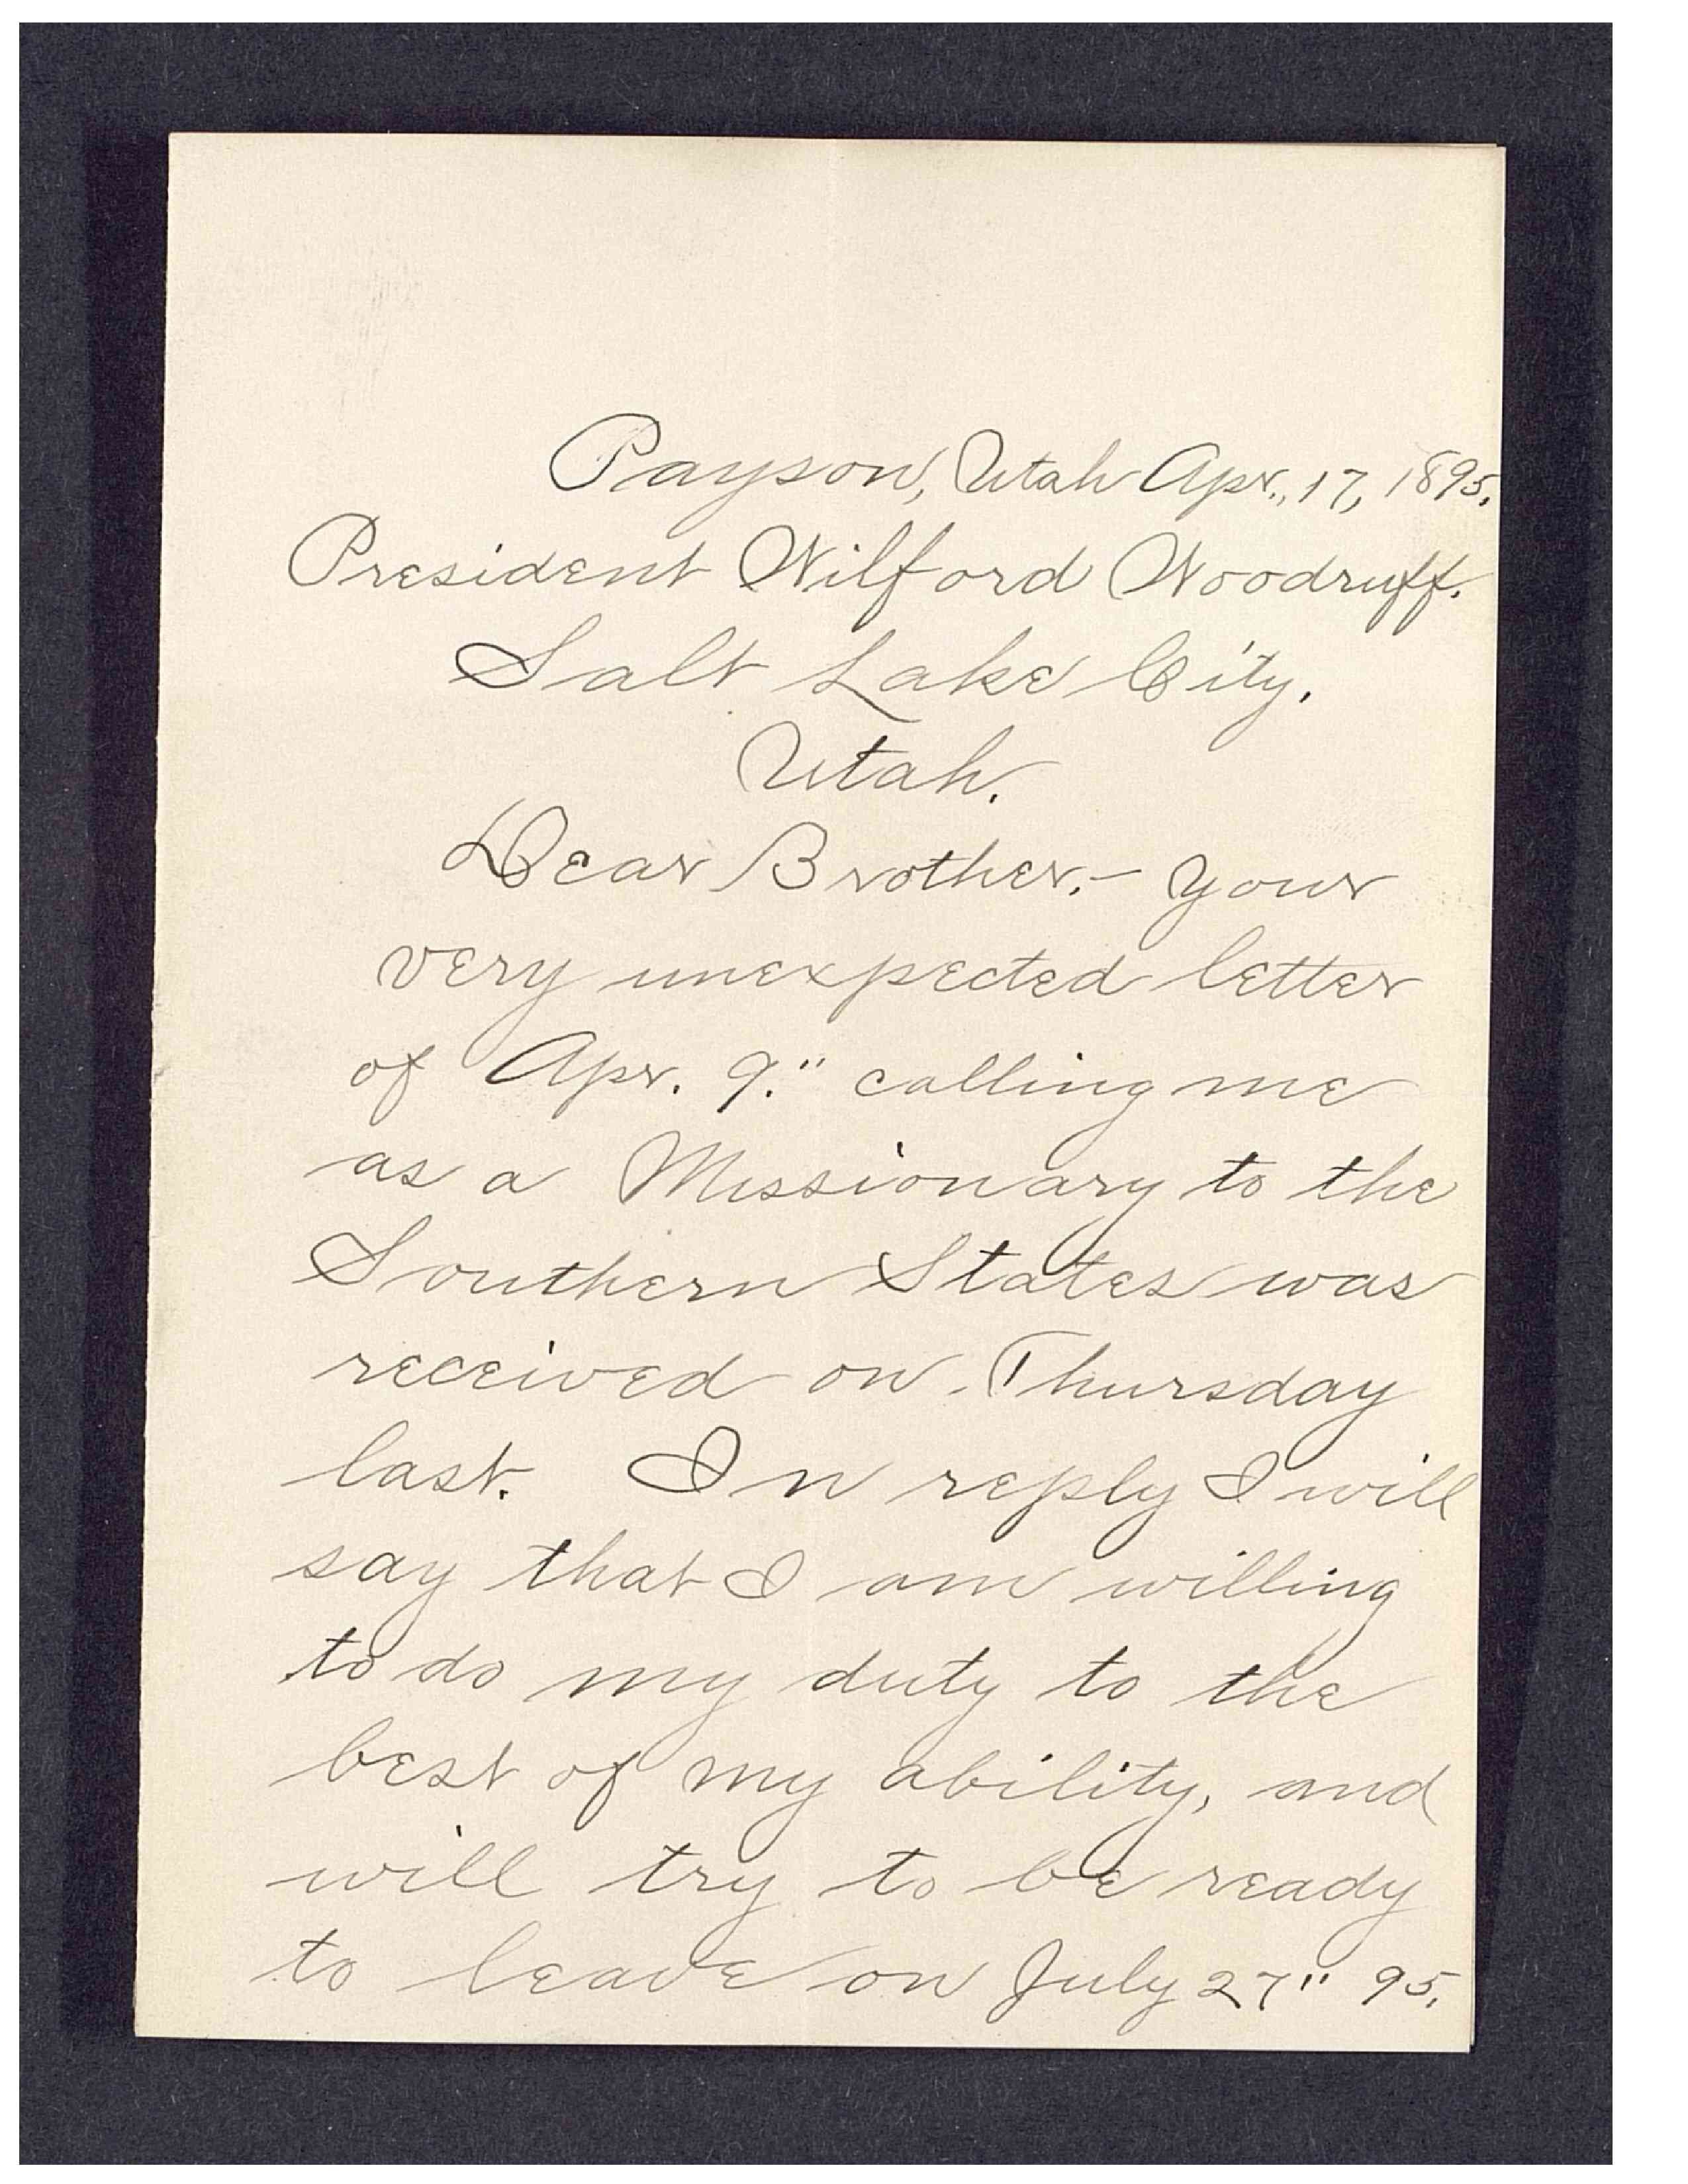 Payson, Utah Apr., 17, 1895.
President Wilford Woodruff.
Salt Lake City.
Utah.
Dear Brother.- Your
very unexpected letter
of Apr. 9." calling me
as a Missionary to the
Southern States was
received on Thursday
last. In reply I will
say that I am willing
to do my duty to the
best of my ability, and
will try to be ready
to leave on July 27" 95.